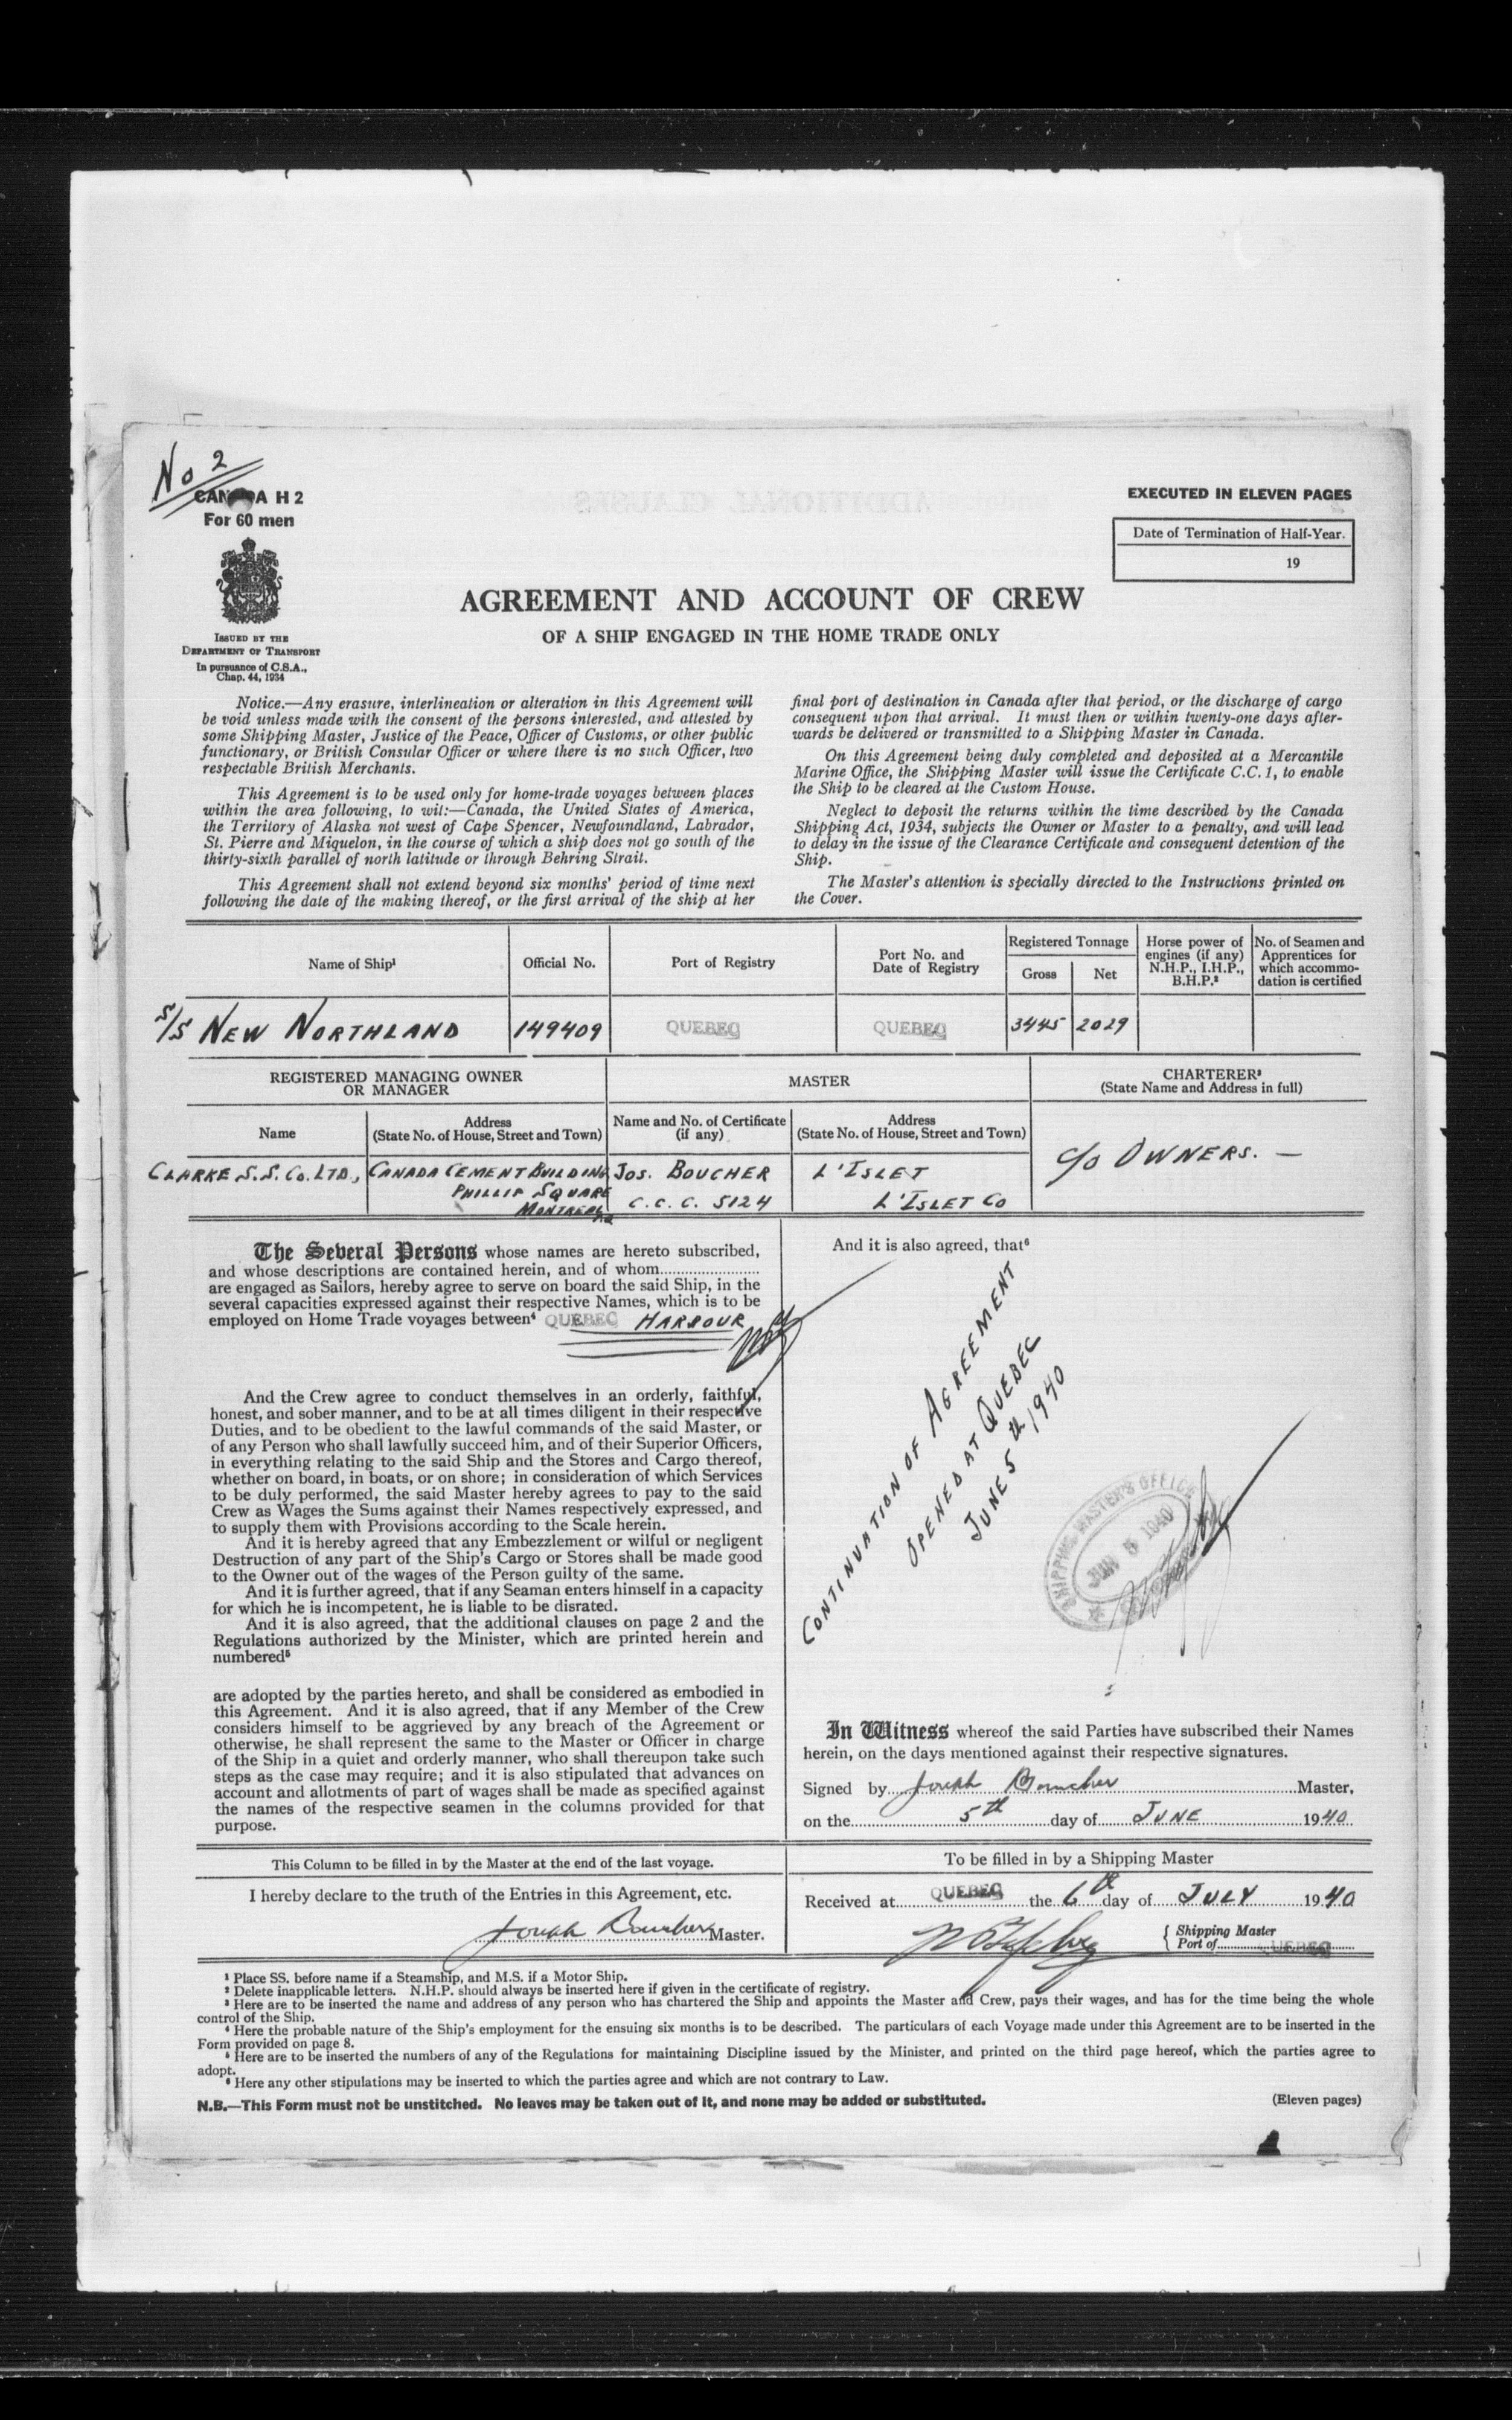 No 2
CANADA H 2
For 60 men
ISSUED BY THE
DEPARTMENT OF TRANSPORT
In pursuance of C.S.A.,
Chap. 44, 1934
EXECUTED IN ELEVEN PAGES
Date of Termination of Half-Year.
19
AGREEMENT AND ACCOUNT OF CREW
OF A SHIP ENGAGED IN THE HOME TRADE ONLY
Notice.—Any erasure, interlineation or alteration in this Agreement will
be void unless made with the consent of the persons interested, and attested by
some Shipping Master, Justice of the Peace, Officer of Customs, or other public
functionary, or British Consular Officer or where there is no such Officer, two
respectable British Merchants.
This Agreement is to be used only for home-trade voyages between places
within the area following, to wit:—Canada, the United States of America,
the Territory of Alaska not west of Cape Spencer, Newfoundland, Labrador,
St. Pierre and Miquelon, in the course of which a ship does not go south of the
thirty-sixth parallel of north latitude or through Behring Strait.
This Agreement shall not extend beyond six months' period of time next
following the date of the making thereof, or the first arrival of the ship at her
final port of destination in Canada after that period, or the discharge of cargo
consequent upon that arrival. It must then or within twenty-one days after-
wards be delivered or transmitted to a Shipping Master in Canada.
On this Agreement being duly completed and deposited at a Mercantile
Marine Office, the Shipping Master will issue the Certificate C.C. 1, to enable
the Ship to be cleared at the Custom House.
Neglect to deposit the returns within the time described by the Canada
Shipping Act, 1934, subjects the Owner or Master to a penalty, and will lead
to delay in the issue of the Clearance Certificate and consequent detention of the
Ship.
The Master's attention is specially directed to the Instructions printed on
the Cover.
Name of Ship¹
Official No.
Port of Registry
Port No. and
Date of Registry
Registered Tonnage
Gross
Net
Horse power of
engines (if any)
N.H.P., I.H.P.,
B.H.P.²
No. of Seamen and
Apprentices for
which accommo-
dation is certified
S/S NEW NORTHLAND
149409
QUEBEC
QUEBEC
3445
2029
REGISTERED MANAGING OWNER
OR MANAGER
MASTER
CHARTERER³
(State Name and Address in full)
Name
Address
(State No. of House, Street and Town)
Name and No. of Certificate
(if any)
Address
(State No. of House, Street and Town)
CLARKE S.S. CO. LTD.,
CANADA CEMENT BUILDING
PHILLIP SQUARE
MONTREAL
JOS. BOUCHER
C.C.C. 5124
L'ISLET
L'ISLET CO
C/O OWNERS. —
The Several Persons whose names are hereto subscribed,
and whose descriptions are contained herein, and of whom
are engaged as Sailors, hereby agree to serve on board the said Ship, in the
several capacities expressed against their respective Names, which is to be
employed on Home Trade voyages between⁴ QUEBEC HARBOUR
And the Crew agree to conduct themselves in an orderly, faithful,
honest, and sober manner, and to be at all times diligent in their respective
Duties, and to be obedient to the lawful commands of the said Master, or
of any Person who shall lawfully succeed him, and of their Superior Officers,
in everything relating to the said Ship and the Stores and Cargo thereof,
whether on board, in boats, or on shore; in consideration of which Services
to be duly performed, the said Master hereby agrees to pay to the said
Crew as Wages the Sums against their Names respectively expressed, and
to supply them with Provisions according to the Scale herein.
And it is hereby agreed that any Embezzlement or wilful or negligent
Destruction of any part of the Ship's Cargo or Stores shall be made good
to the Owner out of the wages of the Person guilty of the same.
And it is further agreed, that if any Seaman enters himself in a capacity
for which he is incompetent, he is liable to be disrated.
And it is also agreed, that the additional clauses on page 2 and the
Regulations authorized by the Minister, which are printed herein and
numbered⁵
are adopted by the parties hereto, and shall be considered as embodied in
this Agreement. And it is also agreed, that if any Member of the Crew
considers himself to be aggrieved by any breach of the Agreement or
otherwise, he shall represent the same to the Master or Officer in charge
of the Ship in a quiet and orderly manner, who shall thereupon take such
steps as the case may require; and it is also stipulated that advances on
account and allotments of part of wages shall be made as specified against
the names of the respective seamen in the columns provided for that
purpose.
And it is also agreed, that⁶
CONTINUATION OF AGREEMENT
OPENED AT QUEBEC
JUNE 5th 1940
SHIPPING MASTER'S OFFICE
JUN 5 1940
In Witness whereof the said Parties have subscribed their Names
herein, on the days mentioned against their respective signatures.
Signed by Joseph Boucher Master,
on the 5th day of JUNE 1940.
This Column to be filled in by the Master at the end of the last voyage.
I hereby declare to the truth of the Entries in this Agreement, etc.
Joseph Boucher Master.
To be filled in by a Shipping Master
Received at QUEBEC the 6th day of JULY 1940
Shipping Master
Port of QUEBEC
¹ Place SS. before name if a Steamship, and M.S. if a Motor Ship.
² Delete inapplicable letters. N.H.P. should always be inserted here if given in the certificate of registry.
³ Here are to be inserted the name and address of any person who has chartered the Ship and appoints the Master and Crew, pays their wages, and has for the time being the whole
control of the Ship.
⁴ Here the probable nature of the Ship's employment for the ensuing six months is to be described. The particulars of each Voyage made under this Agreement are to be inserted in the
Form provided on page 8.
⁵ Here are to be inserted the numbers of any of the Regulations for maintaining Discipline issued by the Minister, and printed on the third page hereof, which the parties agree to
adopt.
⁶ Here any other stipulations may be inserted to which the parties agree and which are not contrary to Law.
N.B.—This Form must not be unstitched. No leaves may be taken out of it, and none may be added or substituted.
(Eleven pages)